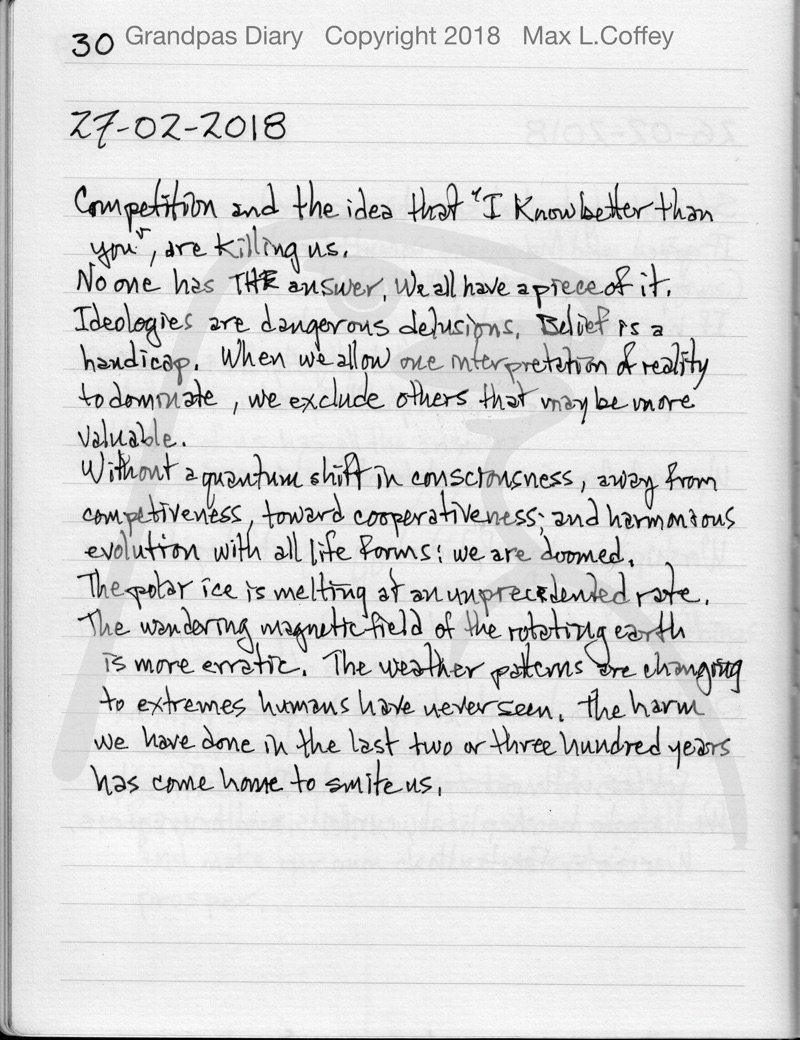 30 Grandpas Diary Copyright 2018 Max L.Coffey
27-02-2018
Competition and the idea that "I Know better than
you", are killing us.
No one has THE answer, We all have a piece of it.
Ideologies are dangerous delusions. Belief is a
handicap. When we allow one interpretation of reality
to dominate, we exclude others that may be more
valuable.
Without a quantum shift in consciousness, away from
competiveness, toward cooperativeness; and harmonious
evolution with all life forms: we are doomed.
The polar ice is melting at an unprecedented rate.
The wandering magnetic field of the rotating earth
is more erratic. The weather patterns are changing
to extremes humans have never seen. The harm
we have done in the last two or three hundred years
has come home to smite us.